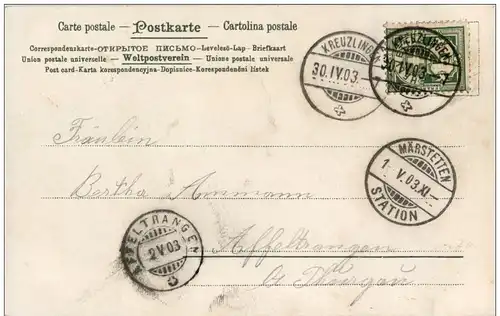 Carte postale – Postkarte – Cartolina postale
Correspondenzkarte-ОТКРЫТОЕ ПИСЬМО-Levelező-Lap-Briefkaart
Union postale universelle – Weltpostverein – Unione postale universale
Post card-Karta korespondencyjna-Dopisnice-Korespondenční lístek
KREUZLINGEN
30.IV.03
KREUZLINGEN
30.IV.03
Fräulein
MÄRSTETTEN
1.V.03.XI
STATION
Bertha Ammann
AFFELTRANGEN
2.V.03
Affeltrangen
Ct Thurgau